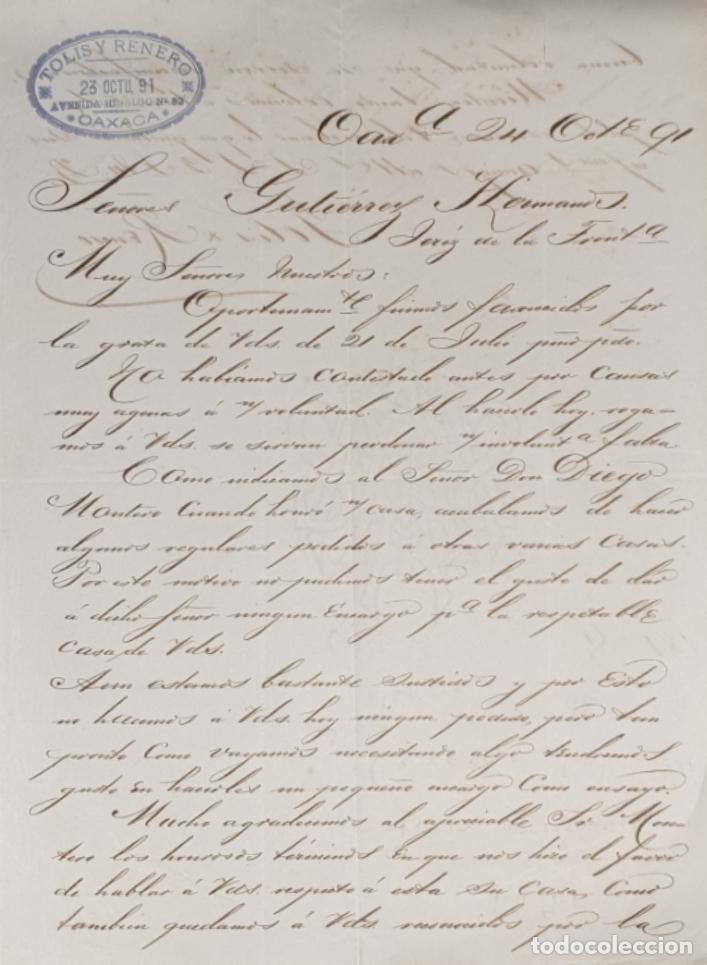 TOLIS Y RENERO
23 OCTU. 91
AVENIDA HIDALGO No. 52
OAXACA
Oaxa 24 Octe 91
Señores Gutiérrez Hermanos.
Jeréz de la Fronta
Muy Señores Nuestros:
Oportunamte fuimos favorecidos por
la grata de Vds. de 21 de Julio pmo pdo.
No habíamos contestado antes por causas
muy agenas á n/ voluntad. Al hacerlo hoy, roga-
mos á Vds. se sirvan perdonar n/ involunta falta
Como indicamos al Señor Don Diego
Montero cuando honró n/ casa, acababamos de hacer
algunos regulares pedidos á otras varias casas.
Por este motivo no pudimos tener el gusto de dar
á dicho Señor ningun encargo pa la respetable
casa de Vds.
Aun estamos bastante surtidos y por esto
no hacemos á Vds. hoy ningun pedido, pero tan
pronto como vayamos necesitando algo tendremos
gusto en hacerles un pequeño encargo como ensayo.
Mucho agradecemos al apreciable Sr Mon-
tero los honrosos términos en que nos hizo el favor
de hablar á Vds. respecto á esta su casa, como
tambien quedamos á Vds. reconocidos por la
todocoleccion